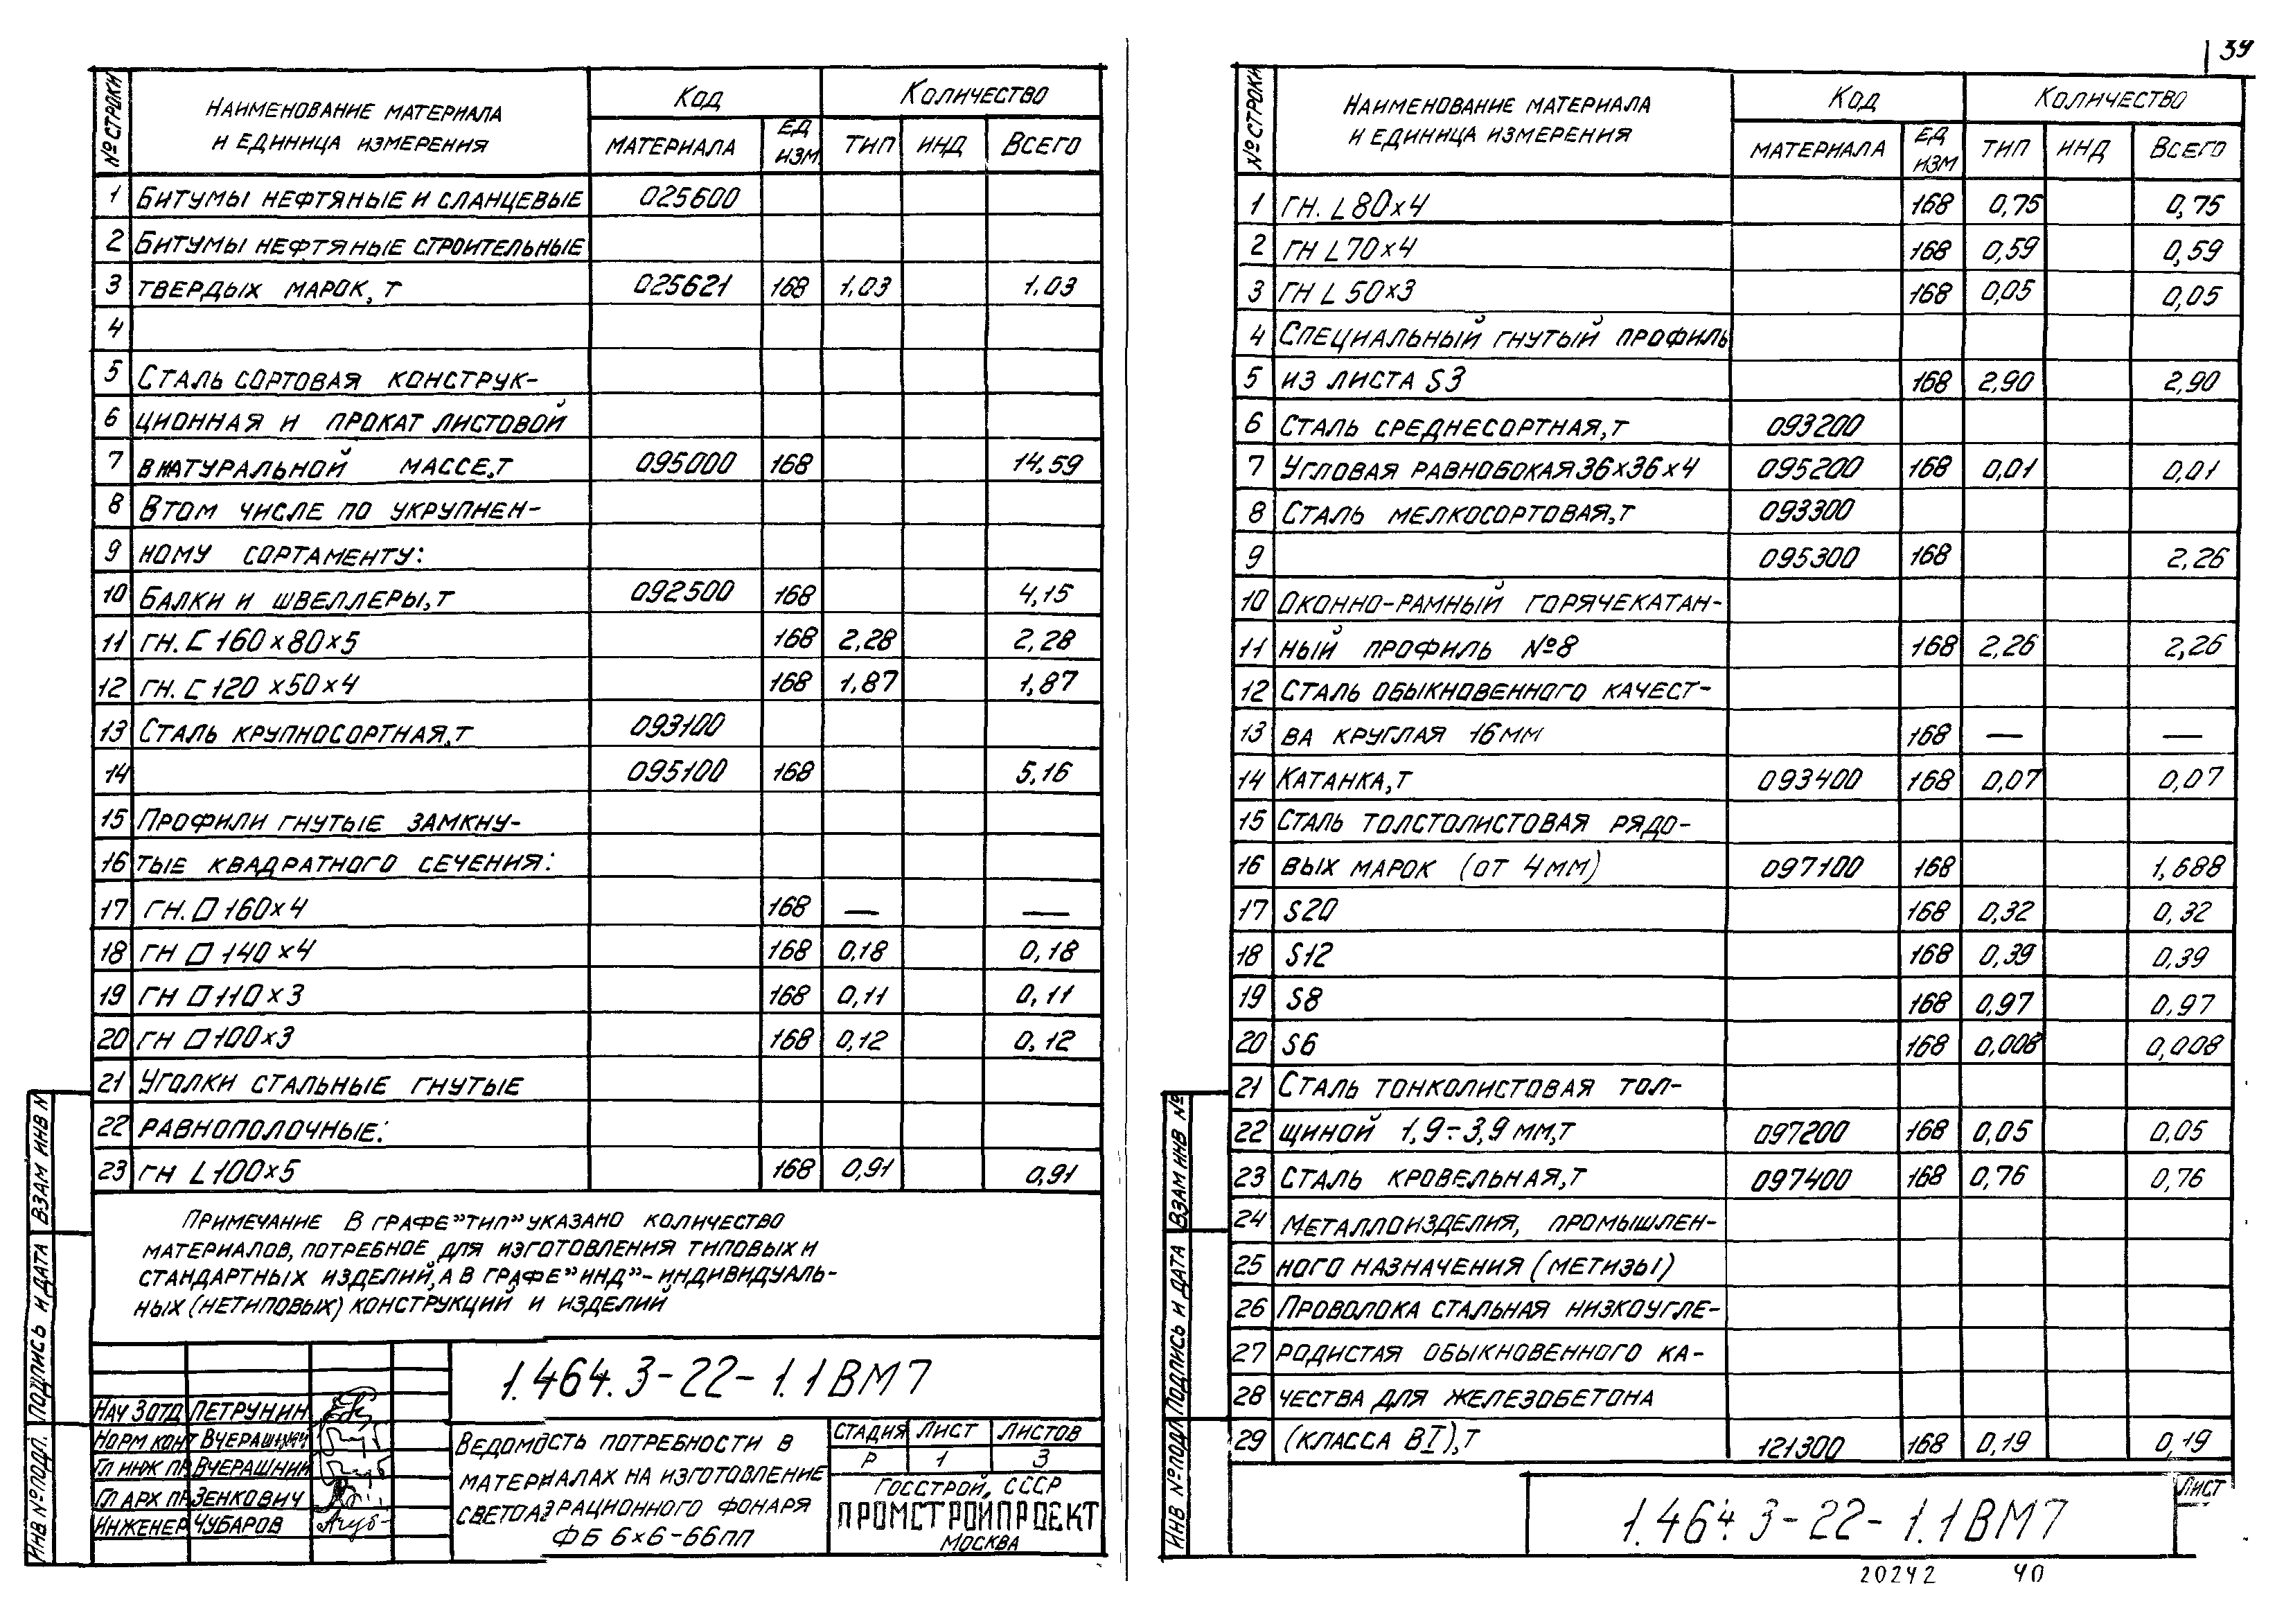 39
№ СТРОКИ
НАИМЕНОВАНИЕ МАТЕРИАЛА
И ЕДИНИЦА ИЗМЕРЕНИЯ
КОД
КОЛИЧЕСТВО
МАТЕРИАЛА
ЕД
ИЗМ
ТИП
ИНД
ВСЕГО
1 БИТУМЫ НЕФТЯНЫЕ И СЛАНЦЕВЫЕ 025600
2 БИТУМЫ НЕФТЯНЫЕ СТРОИТЕЛЬНЫЕ
3 ТВЕРДЫХ МАРОК, Т 025621 168 1,03 1,03
4
5 СТАЛЬ СОРТОВАЯ КОНСТРУК-
6 ЦИОННАЯ И ПРОКАТ ЛИСТОВОЙ
7 В НАТУРАЛЬНОЙ МАССЕ, Т 095000 168 14,59
8 В ТОМ ЧИСЛЕ ПО УКРУПНЕН-
9 НОМУ СОРТАМЕНТУ:
10 БАЛКИ И ШВЕЛЛЕРЫ, Т 092500 168 4,15
11 ГН. [ 160×80×5 168 2,28 2,28
12 ГН. [ 120×50×4 168 1,87 1,87
13 СТАЛЬ КРУПНОСОРТНАЯ, Т 093100
14 095100 168 5,16
15 ПРОФИЛИ ГНУТЫЕ ЗАМКНУ-
16 ТЫЕ КВАДРАТНОГО СЕЧЕНИЯ:
17 ГН. □ 160×4 168 — —
18 ГН □ 140×4 168 0,18 0,18
19 ГН □ 110×3 168 0,11 0,11
20 ГН □ 100×3 168 0,12 0,12
21 УГОЛКИ СТАЛЬНЫЕ ГНУТЫЕ
22 РАВНОПОЛОЧНЫЕ:
23 ГН L 100×5 168 0,91 0,91
ПРИМЕЧАНИЕ В ГРАФЕ "ТИП" УКАЗАНО КОЛИЧЕСТВО
МАТЕРИАЛОВ, ПОТРЕБНОЕ ДЛЯ ИЗГОТОВЛЕНИЯ ТИПОВЫХ И
СТАНДАРТНЫХ ИЗДЕЛИЙ, А В ГРАФЕ "ИНД"-ИНДИВИДУАЛЬ-
НЫХ (НЕТИПОВЫХ) КОНСТРУКЦИЙ И ИЗДЕЛИЙ
1.464.3-22-1.1ВМ7
НАЧ 3 ОТД ПЕТРУНИН
НОРМ КОНТ ВЧЕРАШНИЙ
ГЛ ИНЖ ПР ВЧЕРАШНИЙ
ГЛ АРХ ПР ЗЕНКОВИЧ
ИНЖЕНЕР ЧУБАРОВ
ВЕДОМОСТЬ ПОТРЕБНОСТИ В
МАТЕРИАЛАХ НА ИЗГОТОВЛЕНИЕ
СВЕТОАЭРАЦИОННОГО ФОНАРЯ
ФБ 6×6-66ПП
СТАДИЯ ЛИСТ ЛИСТОВ
Р 1 3
ГОССТРОЙ, СССР
ПРОМСТРОЙПРОЕКТ
МОСКВА
ВЗАМ ИНВ N
ПОДПИСЬ И ДАТА
ИНВ № ПОДЛ.
№ СТРОКИ
НАИМЕНОВАНИЕ МАТЕРИАЛА
И ЕДИНИЦА ИЗМЕРЕНИЯ
КОД
КОЛИЧЕСТВО
МАТЕРИАЛА
ЕД
ИЗМ
ТИП
ИНД
ВСЕГО
1 ГН. L 80×4 168 0,75 0,75
2 ГН L 70×4 168 0,59 0,59
3 ГН L 50×3 168 0,05 0,05
4 СПЕЦИАЛЬНЫЙ ГНУТЫЙ ПРОФИЛЬ
5 ИЗ ЛИСТА S3 168 2,90 2,90
6 СТАЛЬ СРЕДНЕСОРТНАЯ, Т 093200
7 УГЛОВАЯ РАВНОБОКАЯ 36×36×4 095200 168 0,01 0,01
8 СТАЛЬ МЕЛКОСОРТОВАЯ, Т 093300
9 095300 168 2,26
10 ОКОННО-РАМНЫЙ ГОРЯЧЕКАТАН-
11 НЫЙ ПРОФИЛЬ №8 168 2,26 2,26
12 СТАЛЬ ОБЫКНОВЕННОГО КАЧЕСТ-
13 ВА КРУГЛАЯ 16 ММ 168 — —
14 КАТАНКА, Т 093400 168 0,07 0,07
15 СТАЛЬ ТОЛСТОЛИСТОВАЯ РЯДО-
16 ВЫХ МАРОК (ОТ 4 ММ) 097100 168 1,688
17 S20 168 0,32 0,32
18 S12 168 0,39 0,39
19 S8 168 0,97 0,97
20 S6 168 0,008 0,008
21 СТАЛЬ ТОНКОЛИСТОВАЯ ТОЛ-
22 ЩИНОЙ 1,9÷3,9 ММ, Т 097200 168 0,05 0,05
23 СТАЛЬ КРОВЕЛЬНАЯ, Т 097400 168 0,76 0,76
24 МЕТАЛЛОИЗДЕЛИЯ, ПРОМЫШЛЕН-
25 НОГО НАЗНАЧЕНИЯ (МЕТИЗЫ)
26 ПРОВОЛОКА СТАЛЬНАЯ НИЗКОУГЛЕ-
27 РОДИСТАЯ ОБЫКНОВЕННОГО КА-
28 ЧЕСТВА ДЛЯ ЖЕЛЕЗОБЕТОНА
29 (КЛАССА ВI), Т 121300 168 0,19 0,19
1.464.3-22-1.1ВМ7
ЛИСТ
ВЗАМ ИНВ №
ПОДПИСЬ И ДАТА
ИНВ № ПОДЛ
20242 40